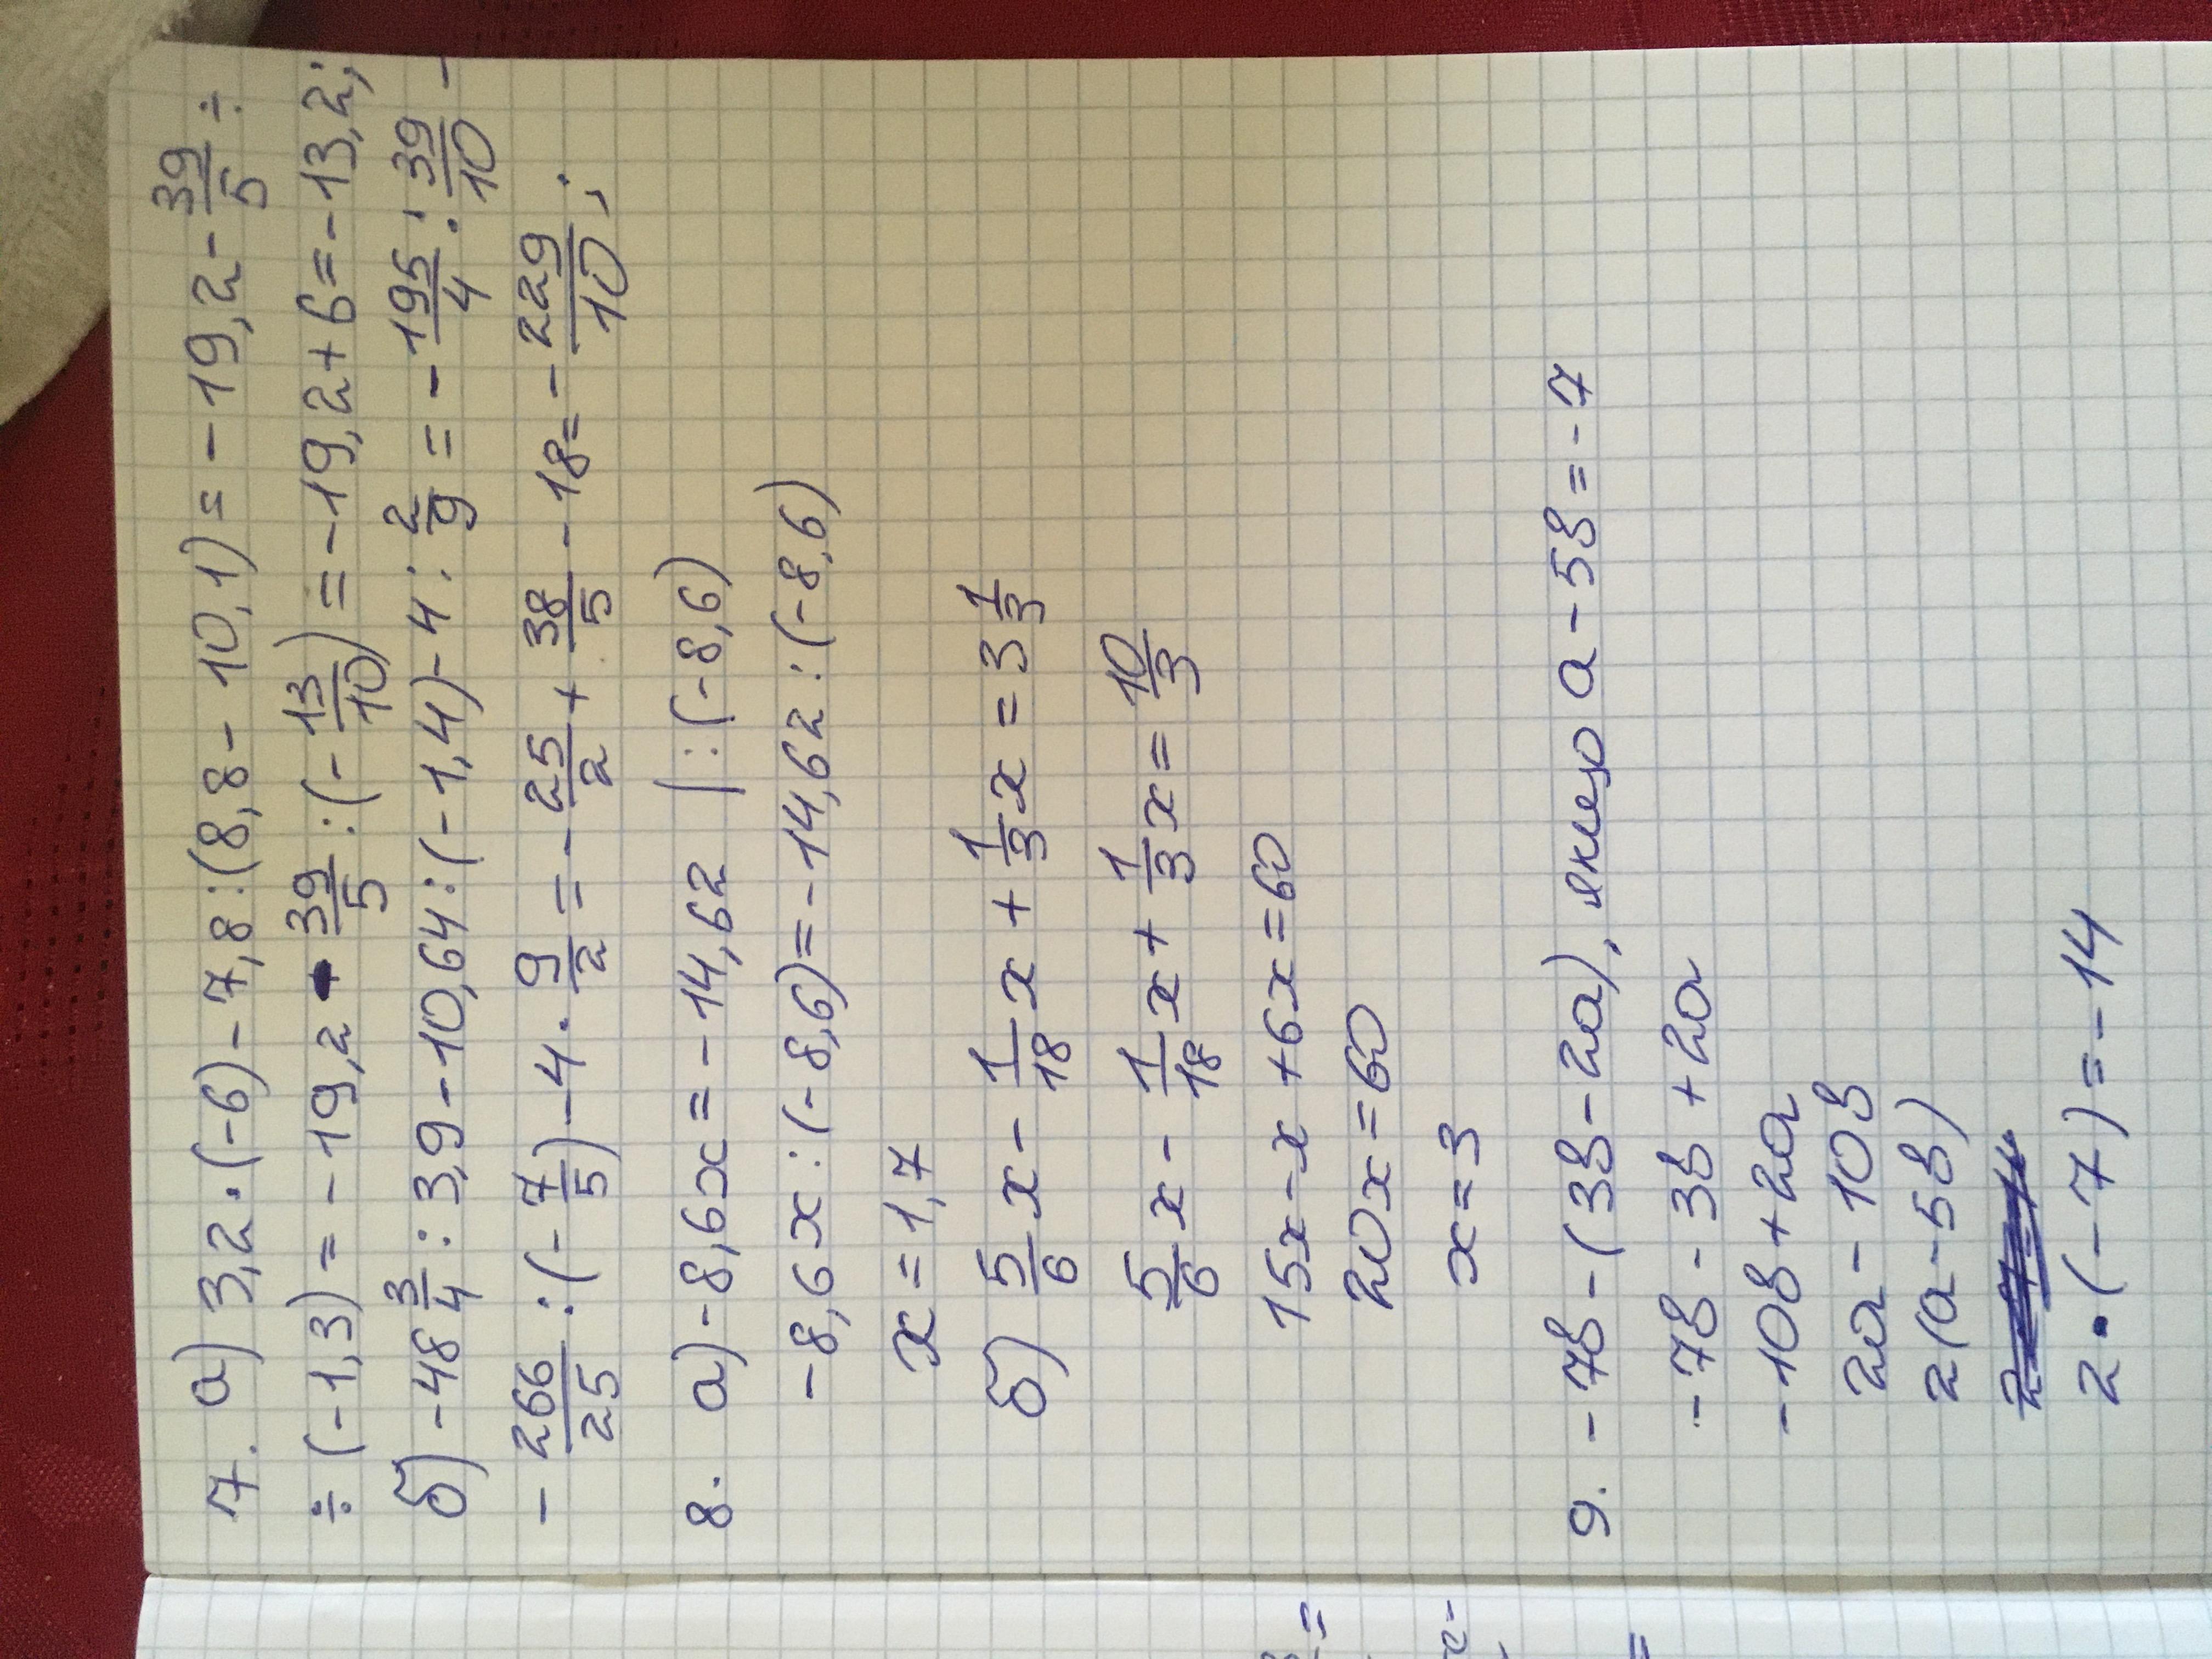 7. а) 3,2·(-6)-7,8:(8,8-10,1)=-19,2-39/5÷
÷(-1,3)=-19,2-39/5:(-13/10)=-19,2+6=-13,2;
б)-48 3/4:3,9-10,64:(-1,4)-4:2/9=-195/4:39/10-
-266/25:(-7/5)-4·9/2=-25/2+38/5-18=-229/10;
8. а)-8,6x=-14,62 |:(-8,6)
-8,6x:(-8,6)=-14,62:(-8,6)
x=1,7
б) 5/6x-1/18x+1/3x=3 1/3
5/6x-1/18x+1/3x=10/3
15x-x+6x=60
20x=60
x=3
9. -7в-(3в-2а), якщо а-5в=-7
-7в-3в+2а
-10в+2а
2а-10в
2(а-5в)
2·(-7)=-14